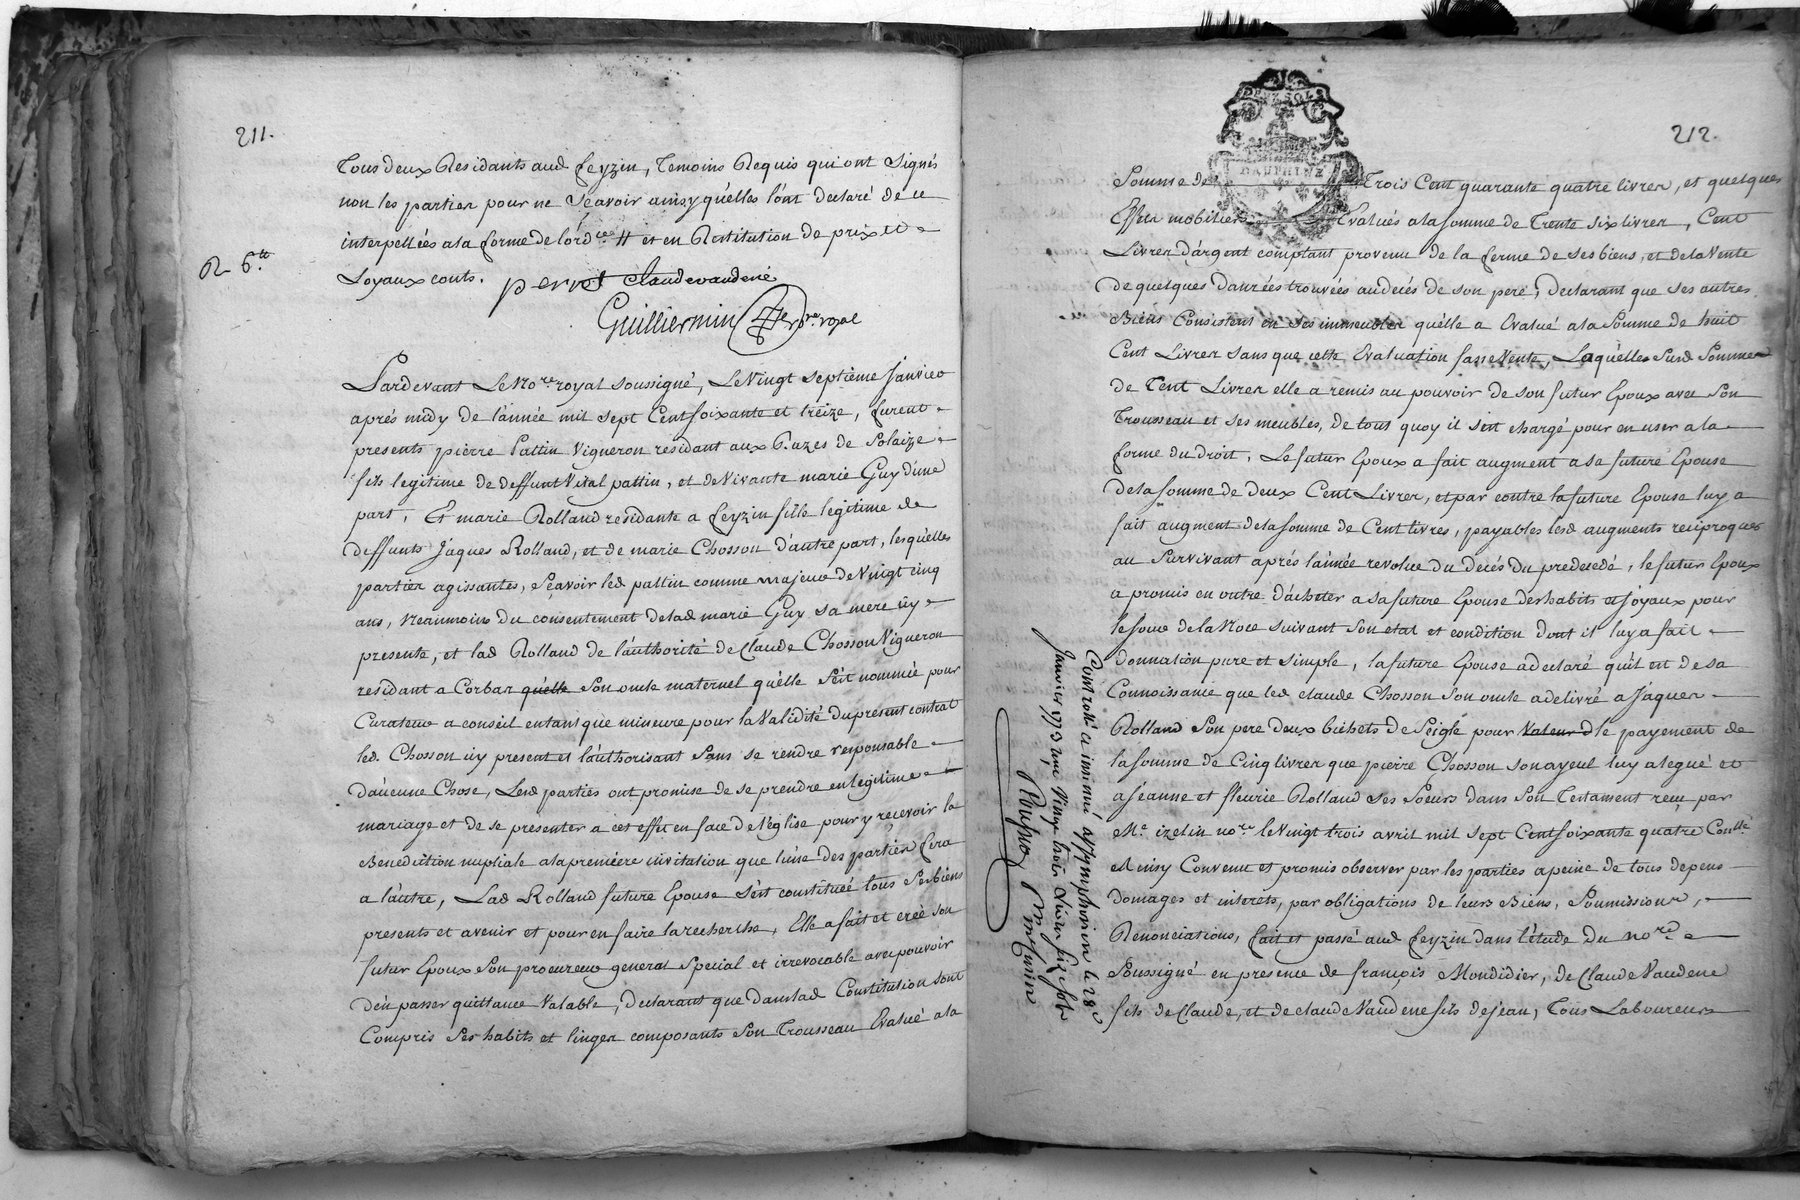 211.
Tous deux Residants aud feyzin, Temoins Requis qui ont signés
non les parties pour ne sçavoir ainsy qu'elles l'ont declaré de ce
interpellées a la forme de l'ord.ce et en Restitution de prix et
Loyaux couts. perrot claudevaudené
R 6.tt
Guilliermin no.re royal
Pardevant Le No.re royal soussigné, Le Vingt septième Janvier
aprés midy de l'année mil sept Cent soixante et treize, furent
presents pierre Pattin Vigneron residant aux Razes de Solaize
fils legitime de deffunt Vital pattin, et de Vivante marie Guy d'une
part, Et marie Rolland residante a feyzin fille legitime de
deffunts Jaques Rolland, et de marie Chosson d'autre part, lesquelles
parties agissantes, sçavoir led pattin comme majeur de Vingt cinq
ans, Neanmoins du consentement de lad marie Guy sa mere icy
presente, et lad Rolland de l'authorité de Claude Chosson Vigneron
residant a Corbas quelle son oncle maternel qu'elle s'est nommée pour
Curateur a conseil entant que mineure pour la Validité du present contrat
led. Chosson icy present et l'authorisant sans se rendre responsable
d'aucune Chose, Lesd parties ont promise de se prendre en legitime
mariage et de se presenter a cet effet en face de l'église pour y recevoir la
Benediction nuptiale a la première invitation que l'une des parties fera
a l'autre, Lad Rolland future Epouse s'est constituée tous ses biens
presents et avenir et pour en faire la recherche, Elle a fait et créé son
futur Epoux son procureur general special et irrevocable avec pouvoir
d'en passer quittance Valable, declarant que dans lad Constitution sont
Compris ses habits et linges composants son Trousseau Evalué a la
212.
DEUX SOLS
DAUPHINÉ
Somme de Trois Cent quarante quatre livres, et quelques
Effets mobiliers Evalués a la somme de Trente six livres, Cent
Livres d'argent comptant provenu de la ferme de ses biens, et de la Vente
de quelques danrées trouvées au decés de son pere, declarant que ses autres
Biens Consistent en ses immeubles qu'elle a Evalué a la Somme de huit
Cent Livres sans que cette Evaluation fasse Vente, Laquelle susd Somme
de Cent Livres elle a remis au pouvoir de son futur Epoux avec son
Trousseau et ses meubles, de tout quoy il s'est chargé pour en user a la
forme du droit. Le futur Epoux a fait augment a sa future Epouse
de la somme de deux Cent Livres, et par contre la future Epouse luy a
fait augment de la somme de Cent livres, payables lesd augments reciproques
au Survivant aprés l'année revolue du décés du predecedé, le futur Epoux
a promis en outre d'acheter a sa future Epouse des habits et joyaux pour
le jour de la Noce suivant son etat et condition dont il luy a fait
donnation pure et simple, la future Epouse a declaré qu'il est de sa
Connoissance que led claude Chosson son oncle a delivré a Jaques
Rolland son pere deux bichets de seigle pour valeur d le payement de
la somme de Cinq livres que pierre Chosson son ayeul luy a legué et
a jeanne et fleurie Rolland ses soeurs dans son Testament reçu par
Me. izelin no.re le Vingt trois avril mil sept Cent soixante quatre
Ainsy Convenu et promis observer par les parties a peine de tous depens
domages et interets, par obligations de leurs Biens, Soumissions,
Renonciations, fait et passé aud feyzin dans l'étude du no.re
Soussigné en presence de françois Mondidier, de Claude Vaudene
fils de Claude, et de claude Vaudene fils de jean, Tous Laboureurs
Controllé et insinué a St Symphorien le 28
Janvier 1773 reçu Vingt trois livres six sols